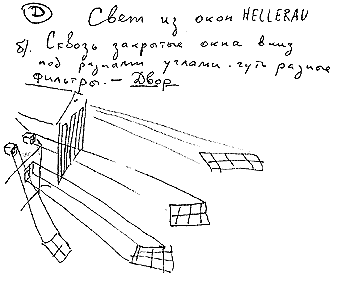 D Свет из окон HELLERAU
б). Сквозь закрытые окна вниз
под разными углами. чуть разные
фильтры. — Двор